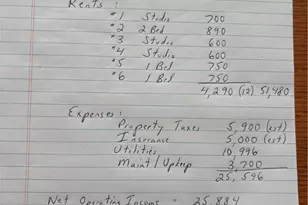 Rents :
#1 Studio 700
#2 2 Bed 890
#3 Studio 600
#4 Studio 600
#5 1 Bed 750
#6 1 Bed 750
4,290 (12) 51,480
Expenses :
Property Taxes 5,900 (est)
Insurance 5,000 (est)
Utilities, 10,996
Maint / Upkeep 3,700
25,596
Net Operating Income = 25,884